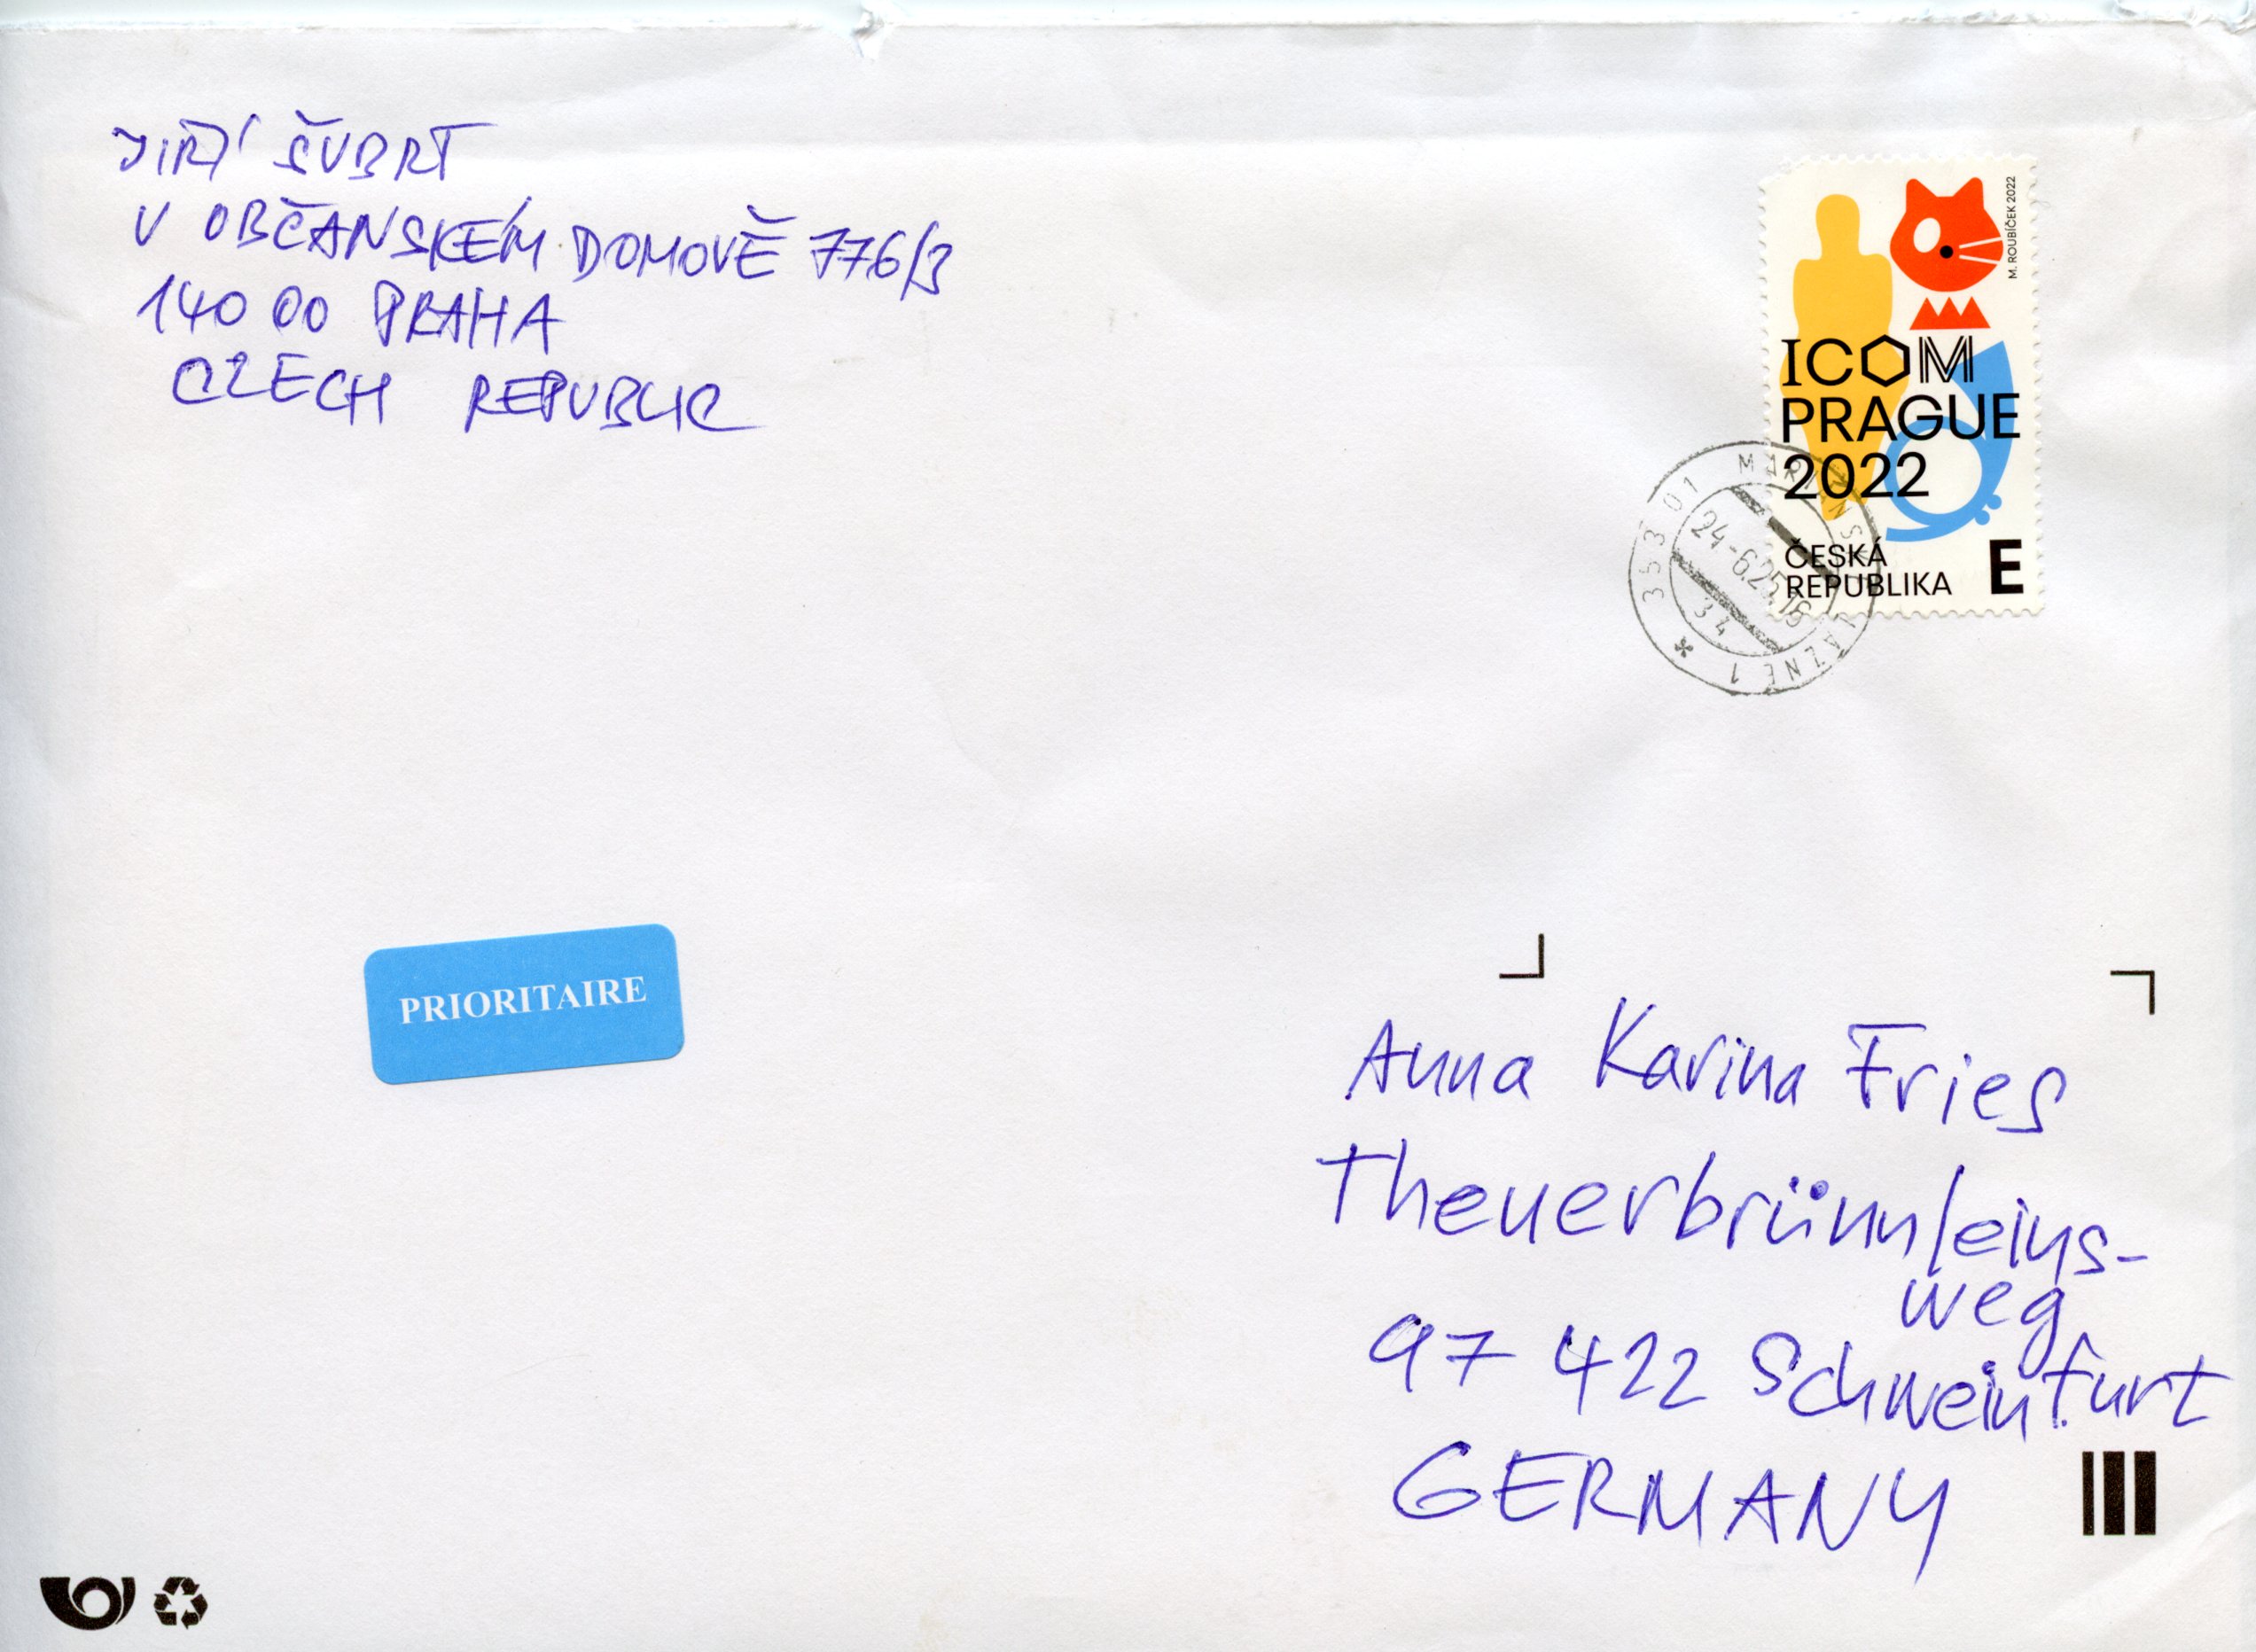 JIŘÍ ŠUBRT
V OBČANSKÉM DOMOVĚ 776/3
140 00 PRAHA
CZECH REPUBLIC
M. ROUBÍČEK 2022
ICOM
PRAGUE
2022
ČESKÁ
REPUBLIKA E
353 01 MARIÁNSKÉ LÁZNĚ 1
24.-6.25.16
34
PRIORITAIRE
Anna Karina Fries
Theuerbrünnleins-
weg
97 422 Schweinfurt
GERMANY